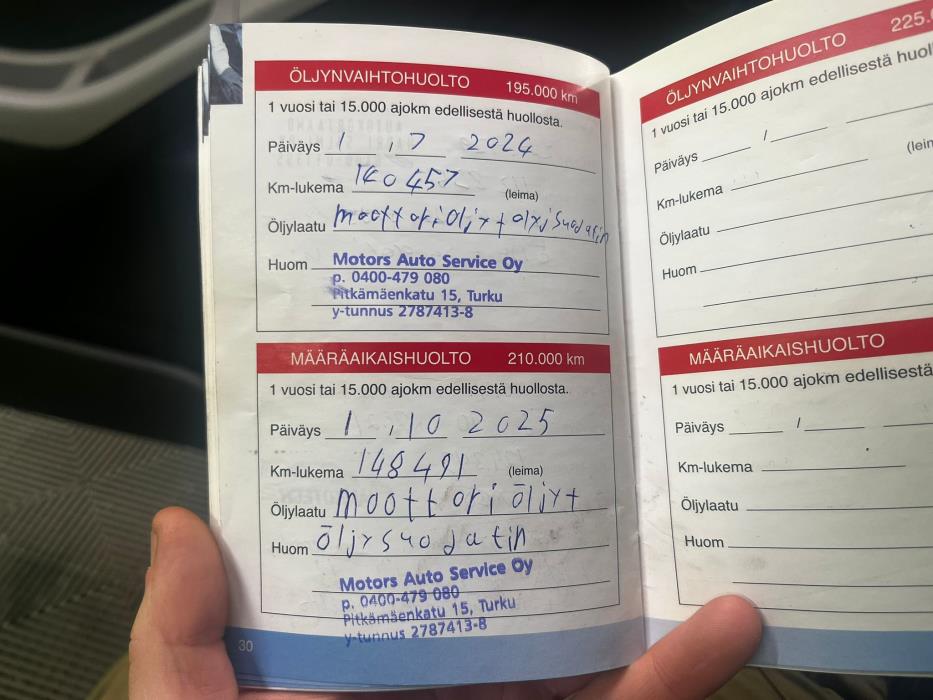 ÖLJYNVAIHTOHUOLTO 195.000 km
1 vuosi tai 15.000 ajokm edellisestä huollosta.
Päiväys 1 / 7 2024
Km-lukema 140457 (leima)
Öljylaatu moottoriöljy + öljysuodatin
Huom Motors Auto Service Oy
p. 0400-479 080
Pitkämäenkatu 15, Turku
y-tunnus 2787413-8
MÄÄRÄAIKAISHUOLTO 210.000 km
1 vuosi tai 15.000 ajokm edellisestä huollosta.
Päiväys 1 / 10 2025
Km-lukema 148491 (leima)
Öljylaatu moottori öljy +
Huom öljysuodatin
Motors Auto Service Oy
p. 0400-479 080
Pitkämäenkatu 15, Turku
y-tunnus 2787413-8
30
ÖLJYNVAIHTOHUOLTO 225.
1 vuosi tai 15.000 ajokm edellisestä huol
Päiväys /
Km-lukema (lein
Öljylaatu
Huom
MÄÄRÄAIKAISHUOLTO
1 vuosi tai 15.000 ajokm edellisestä
Päiväys /
Km-lukema
Öljylaatu
Huom